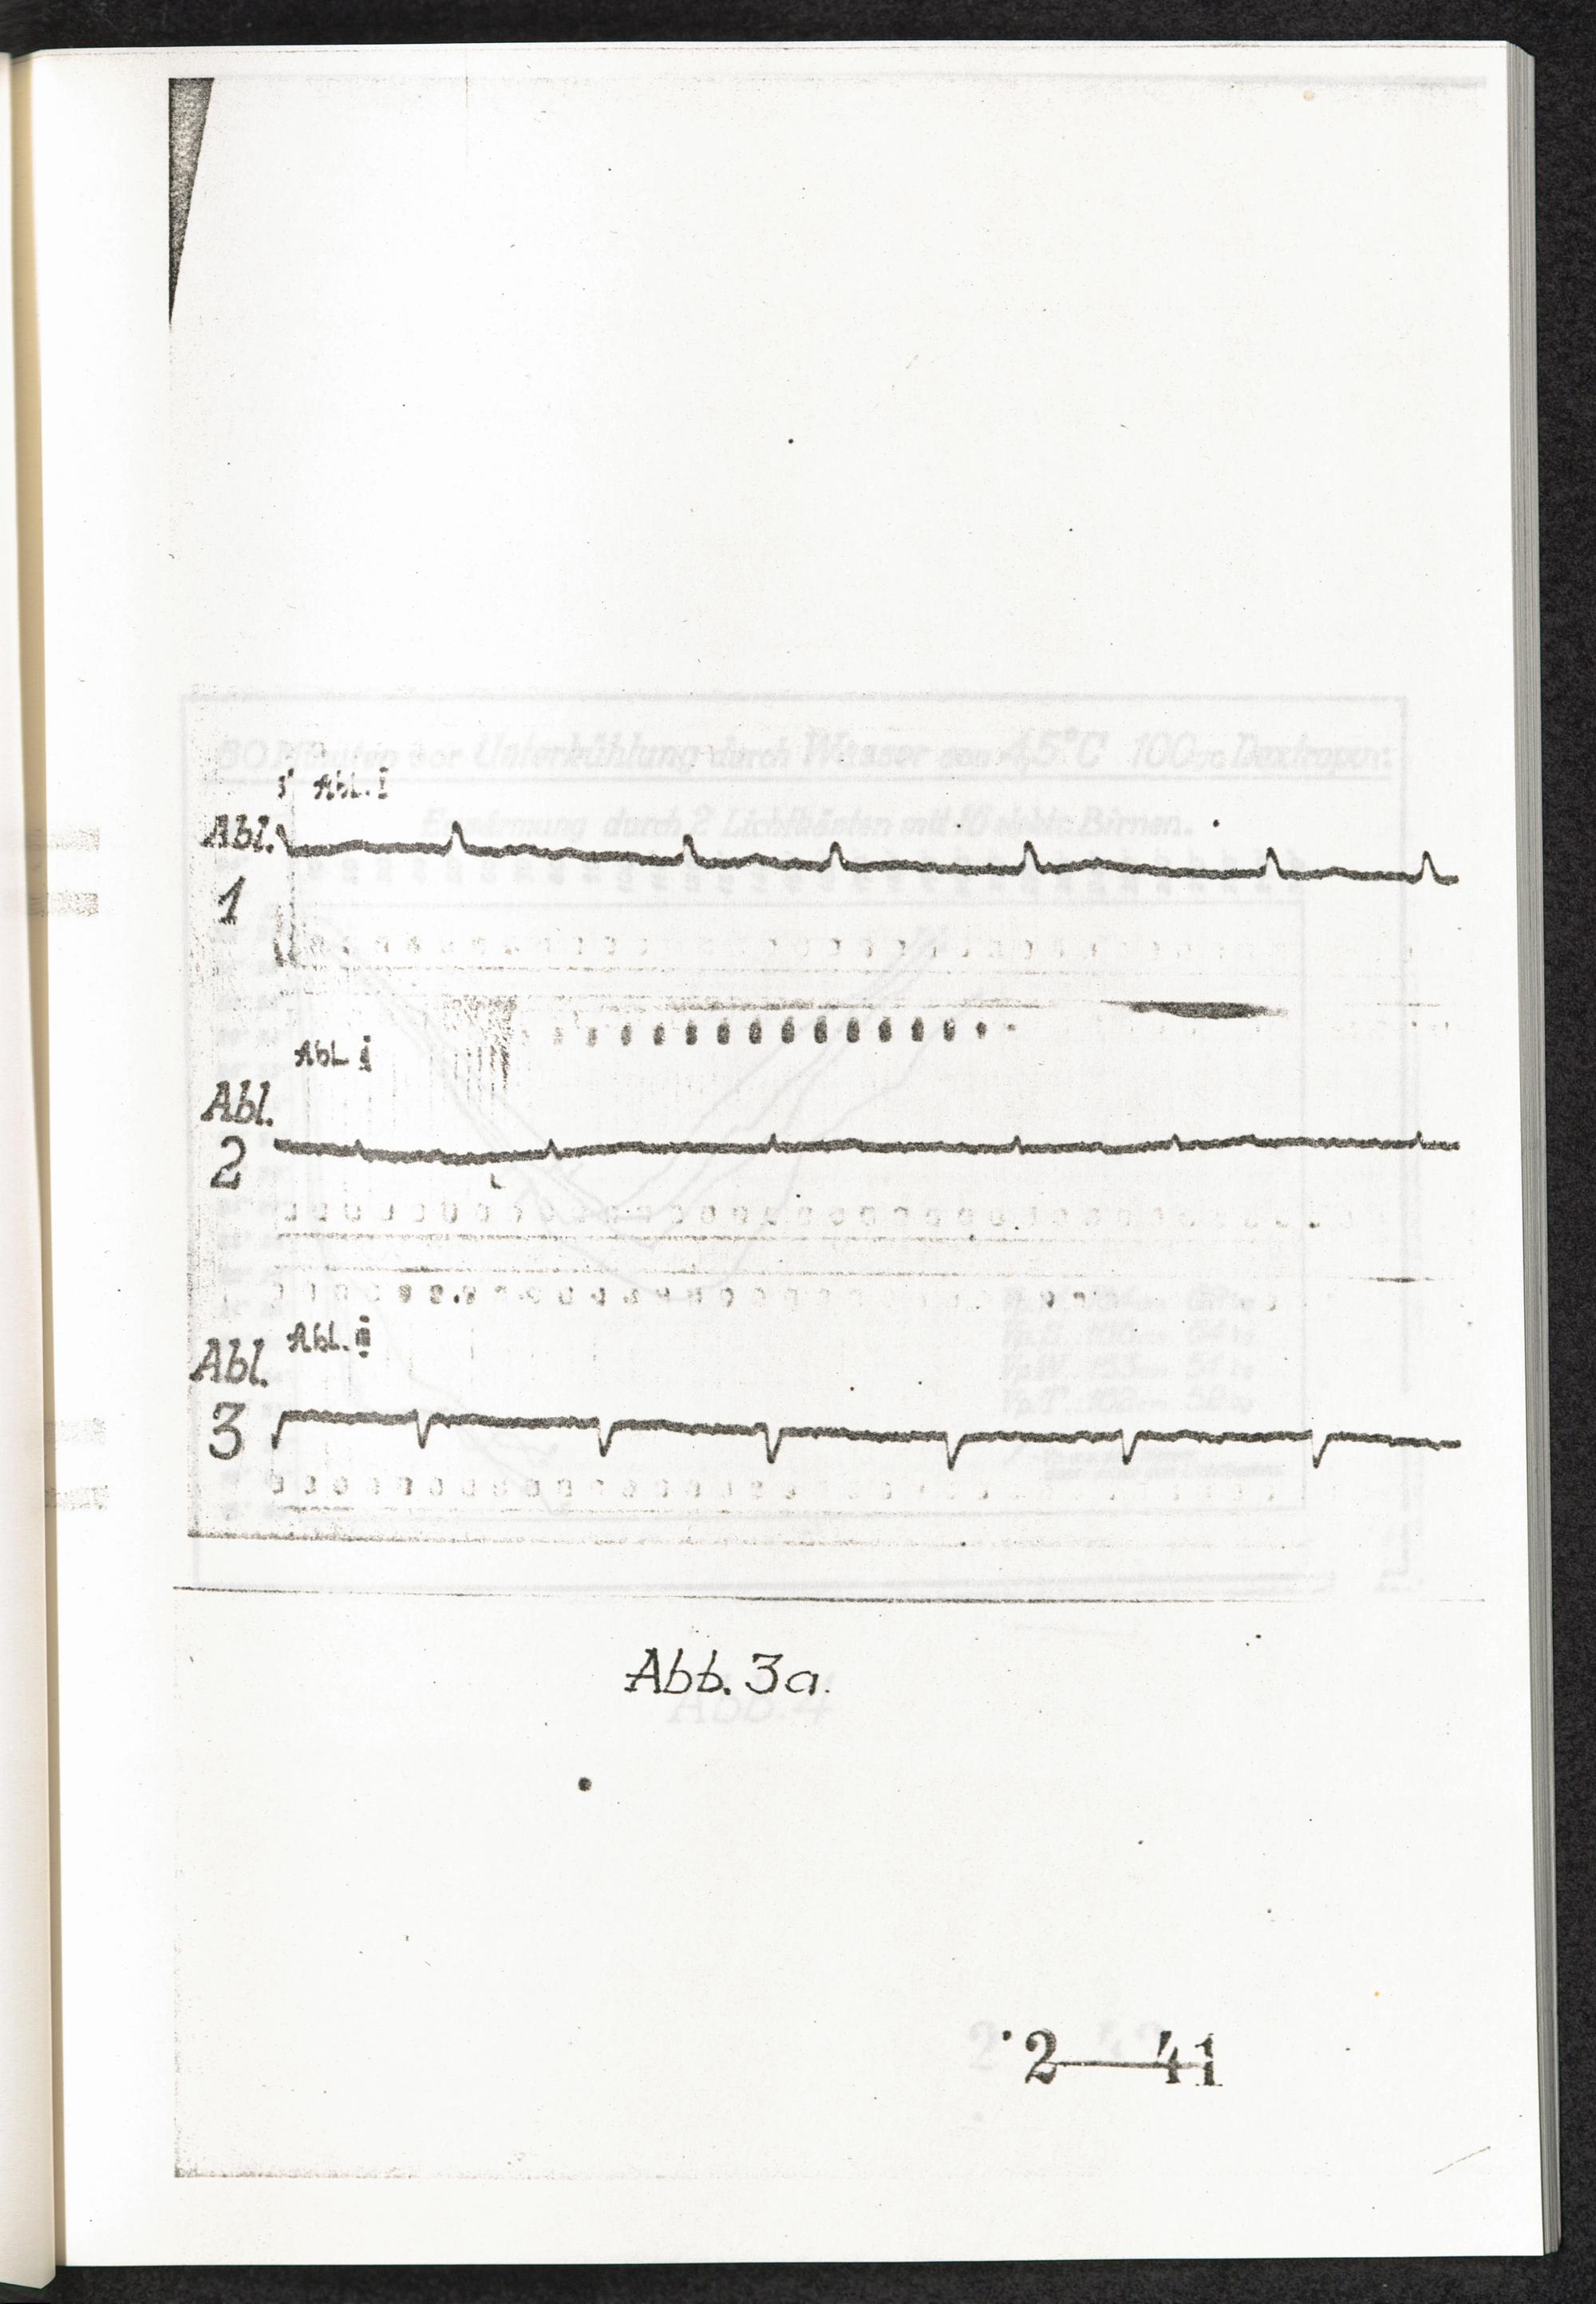 Abl. I
Abl.
1
Abl.
Abl.
2
Abl.
Abl.
3
Abb. 3a.
2—41